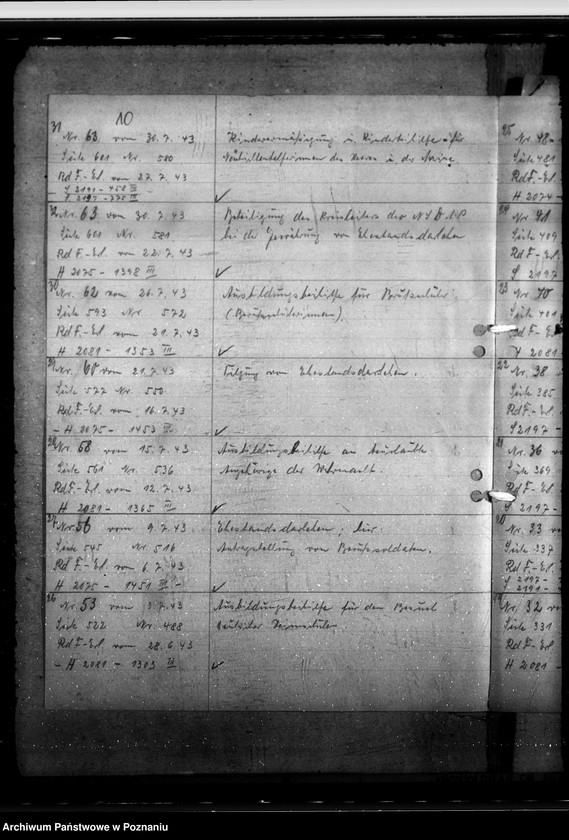 10
31 Nr. 63 vom 30.7.43
Seite 601 Nr. 580
RdF.-Erl. vom 27.7.43
S 2191 - 450 III
Kinderermäßigung u. Kinderbeihilfe für
des Heeres u. der Marine
✓
Nr. 63 vom 30.7.43
Seite 600 Nr. 581
RdF.-Erl. vom 22.7.43
H 2075 - 1398 III
Beteiligung des Kreisleiters der NSDAP
bei der Gewährung von Ehestandsdarlehen
✓
30 Nr. 62 vom 26.7.43
Seite 593 Nr. 572
RdF.-Erl. vom 21.7.43
H 2081 - 1353 III
Ausbildungsbeihilfe für Berufsschüler
(Berufsschülerinnen).
✓
29 Nr. 60 vom 21.7.43
Seite 577 Nr. 550
RdF.-Erl. vom 16.7.43
- H 2075 - 1453 III
Tilgung von Ehestandsdarlehen.
✓
28 Nr. 58 vom 15.7.43
Seite 561 Nr. 536
RdF.-Erl. vom 12.7.43
H 2081 - 1365 III
Ausbildungsbeihilfe an beurlaubte
Angehörige der Wehrmacht.
✓
27 Nr. 56 vom 9.7.43
Seite 545 Nr. 516
RdF.-Erl. vom 6.7.43
H 2075 - 1451 III
Ehestandsdarlehen; hier:
Antragstellung von Berufssoldaten.
✓
26 Nr. 53 vom 3.7.43
Seite 522 Nr. 488
RdF.-Erl. vom 28.6.43
- H 2081 - 1303 III
Ausbildungsbeihilfe für den Besuch
deutscher Heimschulen
✓
25 Nr. 48
Seite 481
RdF.-Erl.
H 2074 -
Seite 409
RdF.-Erl.
S 2197
23 Nr. 40
Seite 401
RdF.-Erl.
H 2081
22 Nr. 38
Seite 385
RdF.-Erl.
S 2197 -
21 Nr. 36
Seite 369
RdF.-Erl.
S 2197 -
20 Nr. 33
Seite 337
RdF.-Erl.
S 2197 -
S 2191 -
19 Nr. 32 vom
Seite 331
RdF.-Erl.
H 2081 -
Archiwum Państwowe w Poznaniu